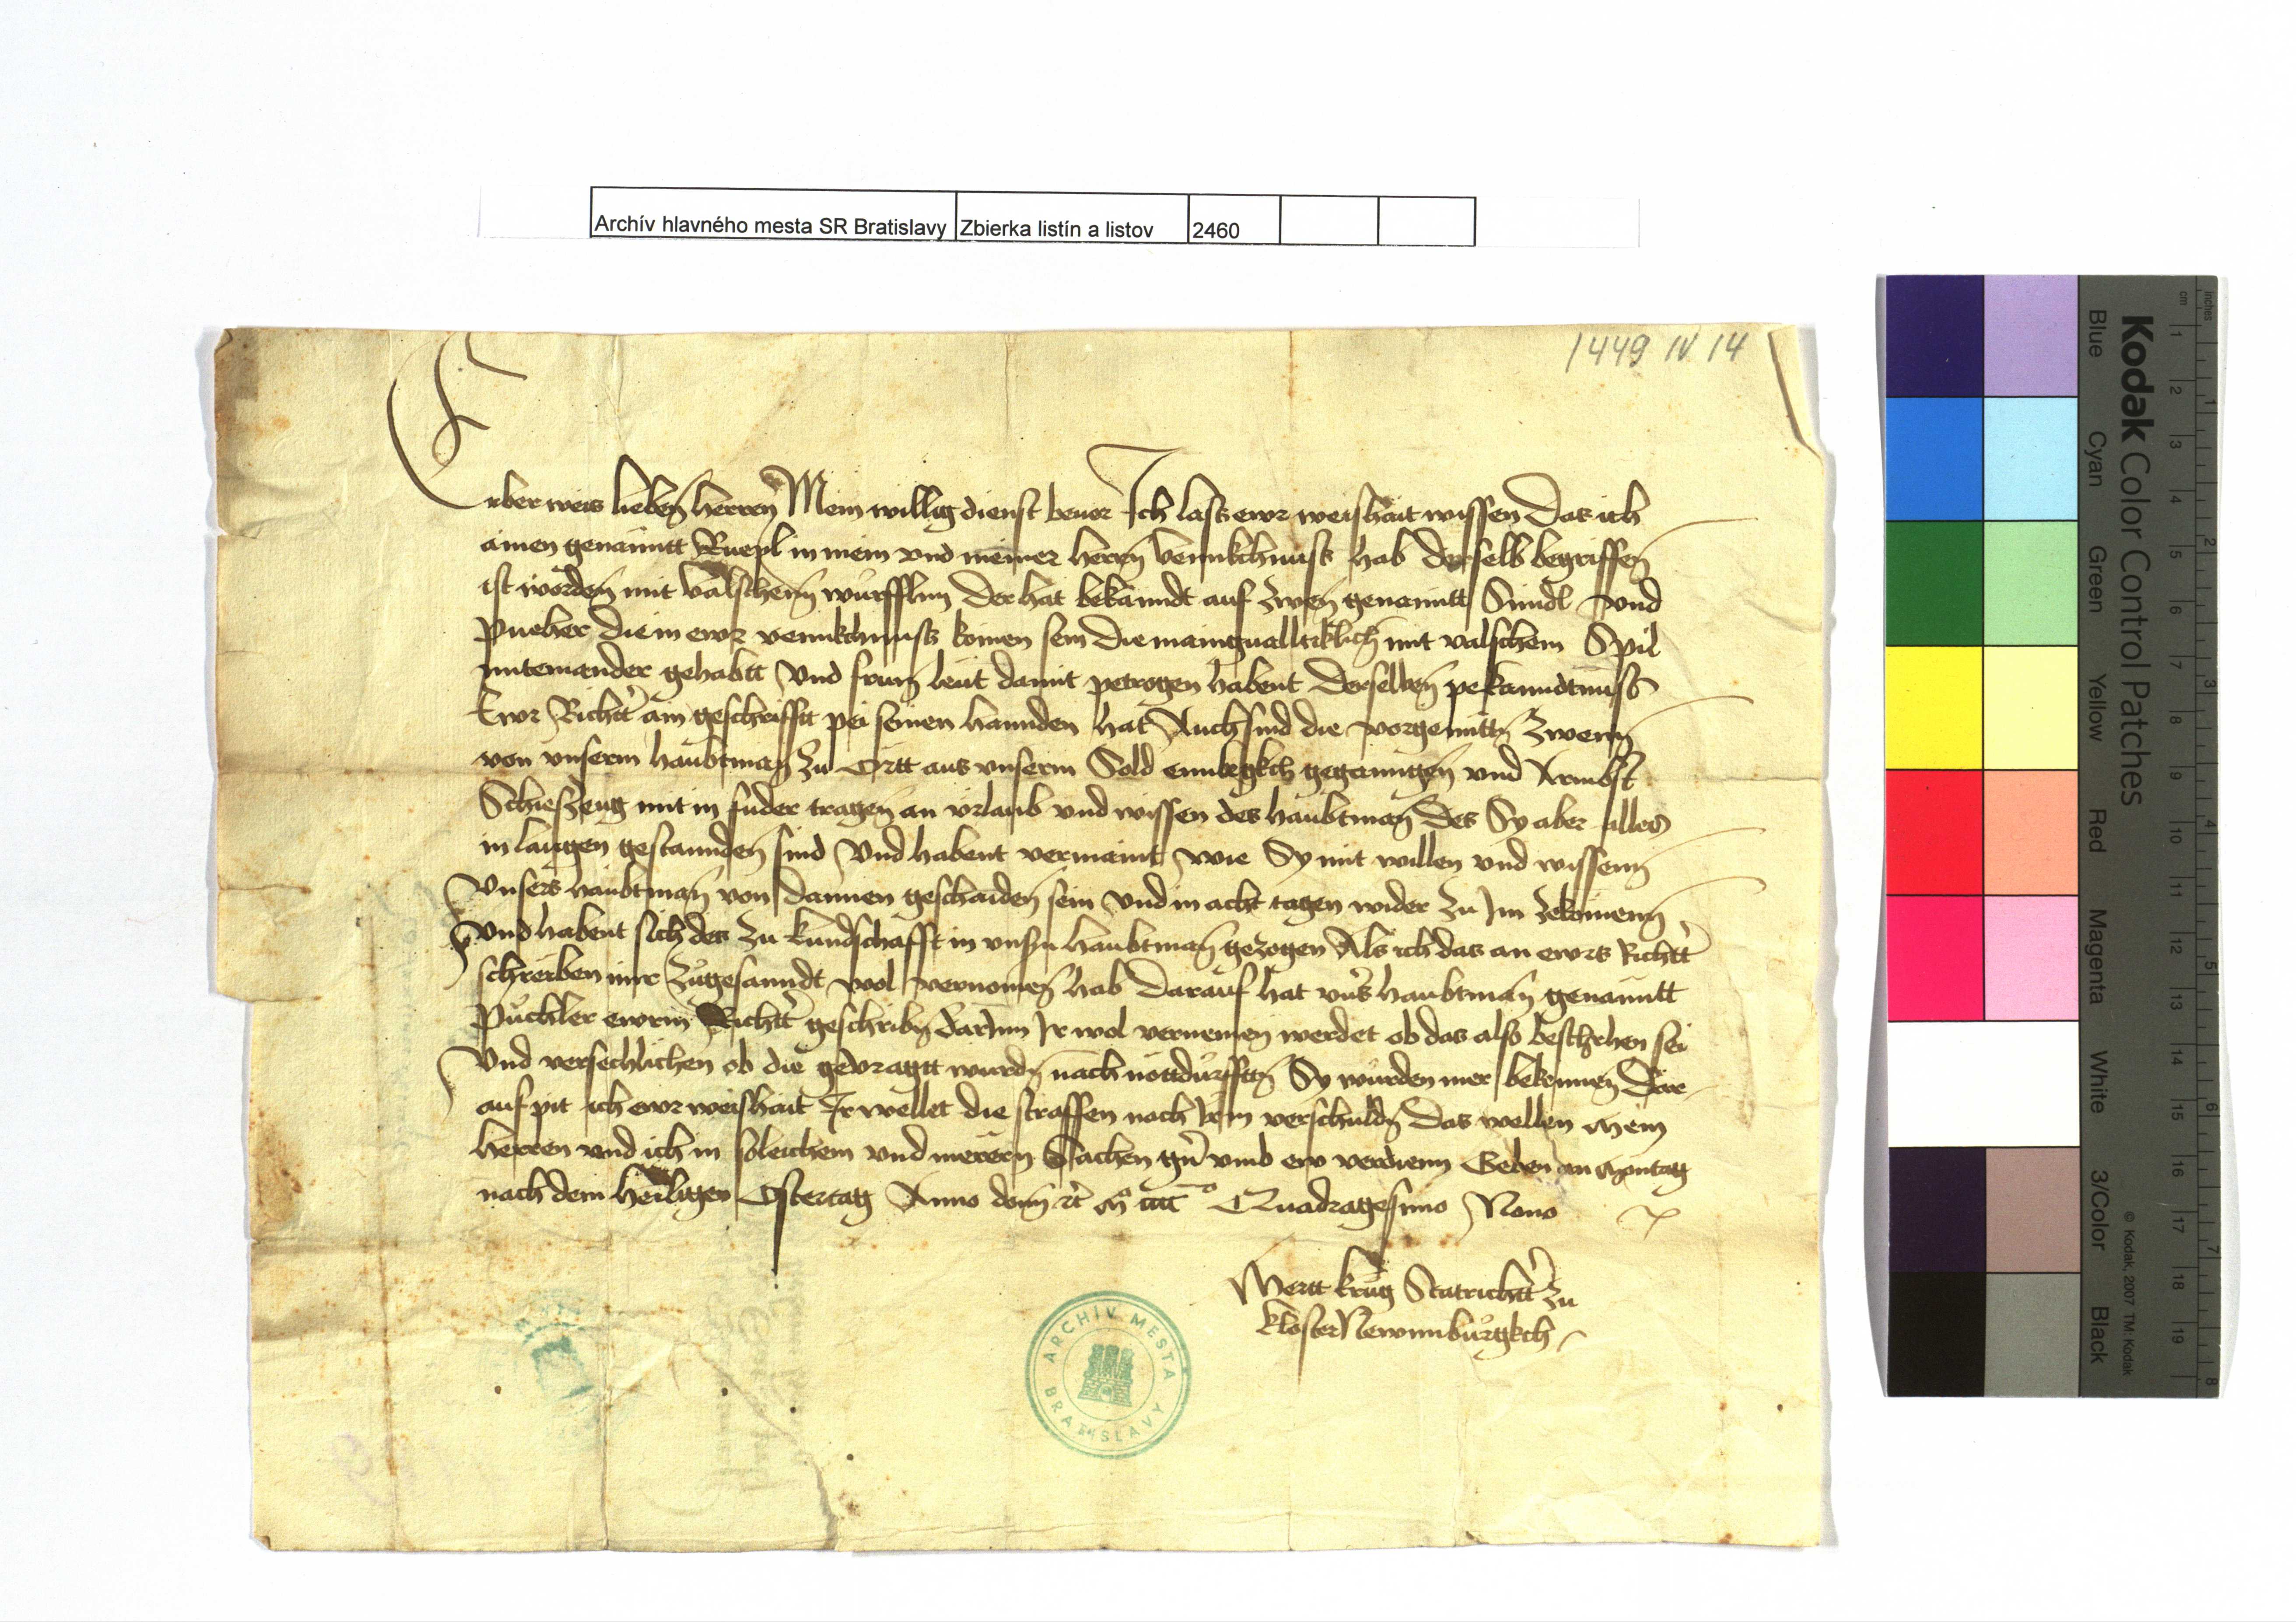 Archív hlavného mesta SR Bratislavy Zbierka listín a listov 2460
1449 IV 14
Erber weis lieben herren Mein willig dienst beuor Ich lass ewr weishait wissen Das ich
ainen genanntt Ruepl in mein vnd meiner herren vennkchnuss hab Derselb begriffen
ist worden mit valschenn würfflnn Der hat bekanndt auf zwen genanntt Simdl vnd
Pueher die in ewr vennkchnuss komen sein Die mainguallticklich mit valschem Spil
miteinander gehabtt Vnd frum leut damit petrogen habent Derselben pekanndtnuss
Ewr Richtter ain geschrifftt pei seinen hannden hat Auch sind die vorgenntten zwenn
von vnserm haubtman zu Ortt aus vnserm Sold ennbegkch geganngen vnd Armbst
Schieszeug mit in fuder tragen an vrlaub vnd wissen des haubtman Des Sy aber alles
in laugen gestannden sind Vnd habent vermaint wie Sy mit willen vnd wissenn
Vnsers haubtman von dannen geschaiden sein Vnd in acht tagen wider zu Im zekomenn
Vnd habent sich des zu kundschafft in vnsern haubtman gezogen Als ich das an ewrs Richtter
schreiben mir zugesanndt wol vernomen hab Darauf hat vnser haubtman genanntt
Püchler ewrm Richtter geschriben darinn Ir wol vernemen werdet ob das also beschehen sei
Vnd versechlichen ob die gevragtt wurden nach nottdürfften Sy wurden mer bekennen Dar
auf pit ich ewr weishait Ir wellet die straffen nach Irm verschulden Das wellen mein
herren vnd ich in soleichem vnd merern Sachen gern vmb ew verdienn Geben an Montag
nach dem heiligen Ostertag Anno domini etc Mo cccco Quadragesimo Nono
Mertt krug Statrichtter zu
klosterNewnnburgkch
ARCHÍV MESTA BRATISLAVY
Kodak Color Control Patches
Blue Cyan Green Yellow Red Magenta White 3/Color Black
© Kodak, 2007 TM: Kodak
inches 1 2 3 4 5 6 7 8
cm 1 2 3 4 5 6 7 8 9 10 11 12 13 14 15 16 17 18 19